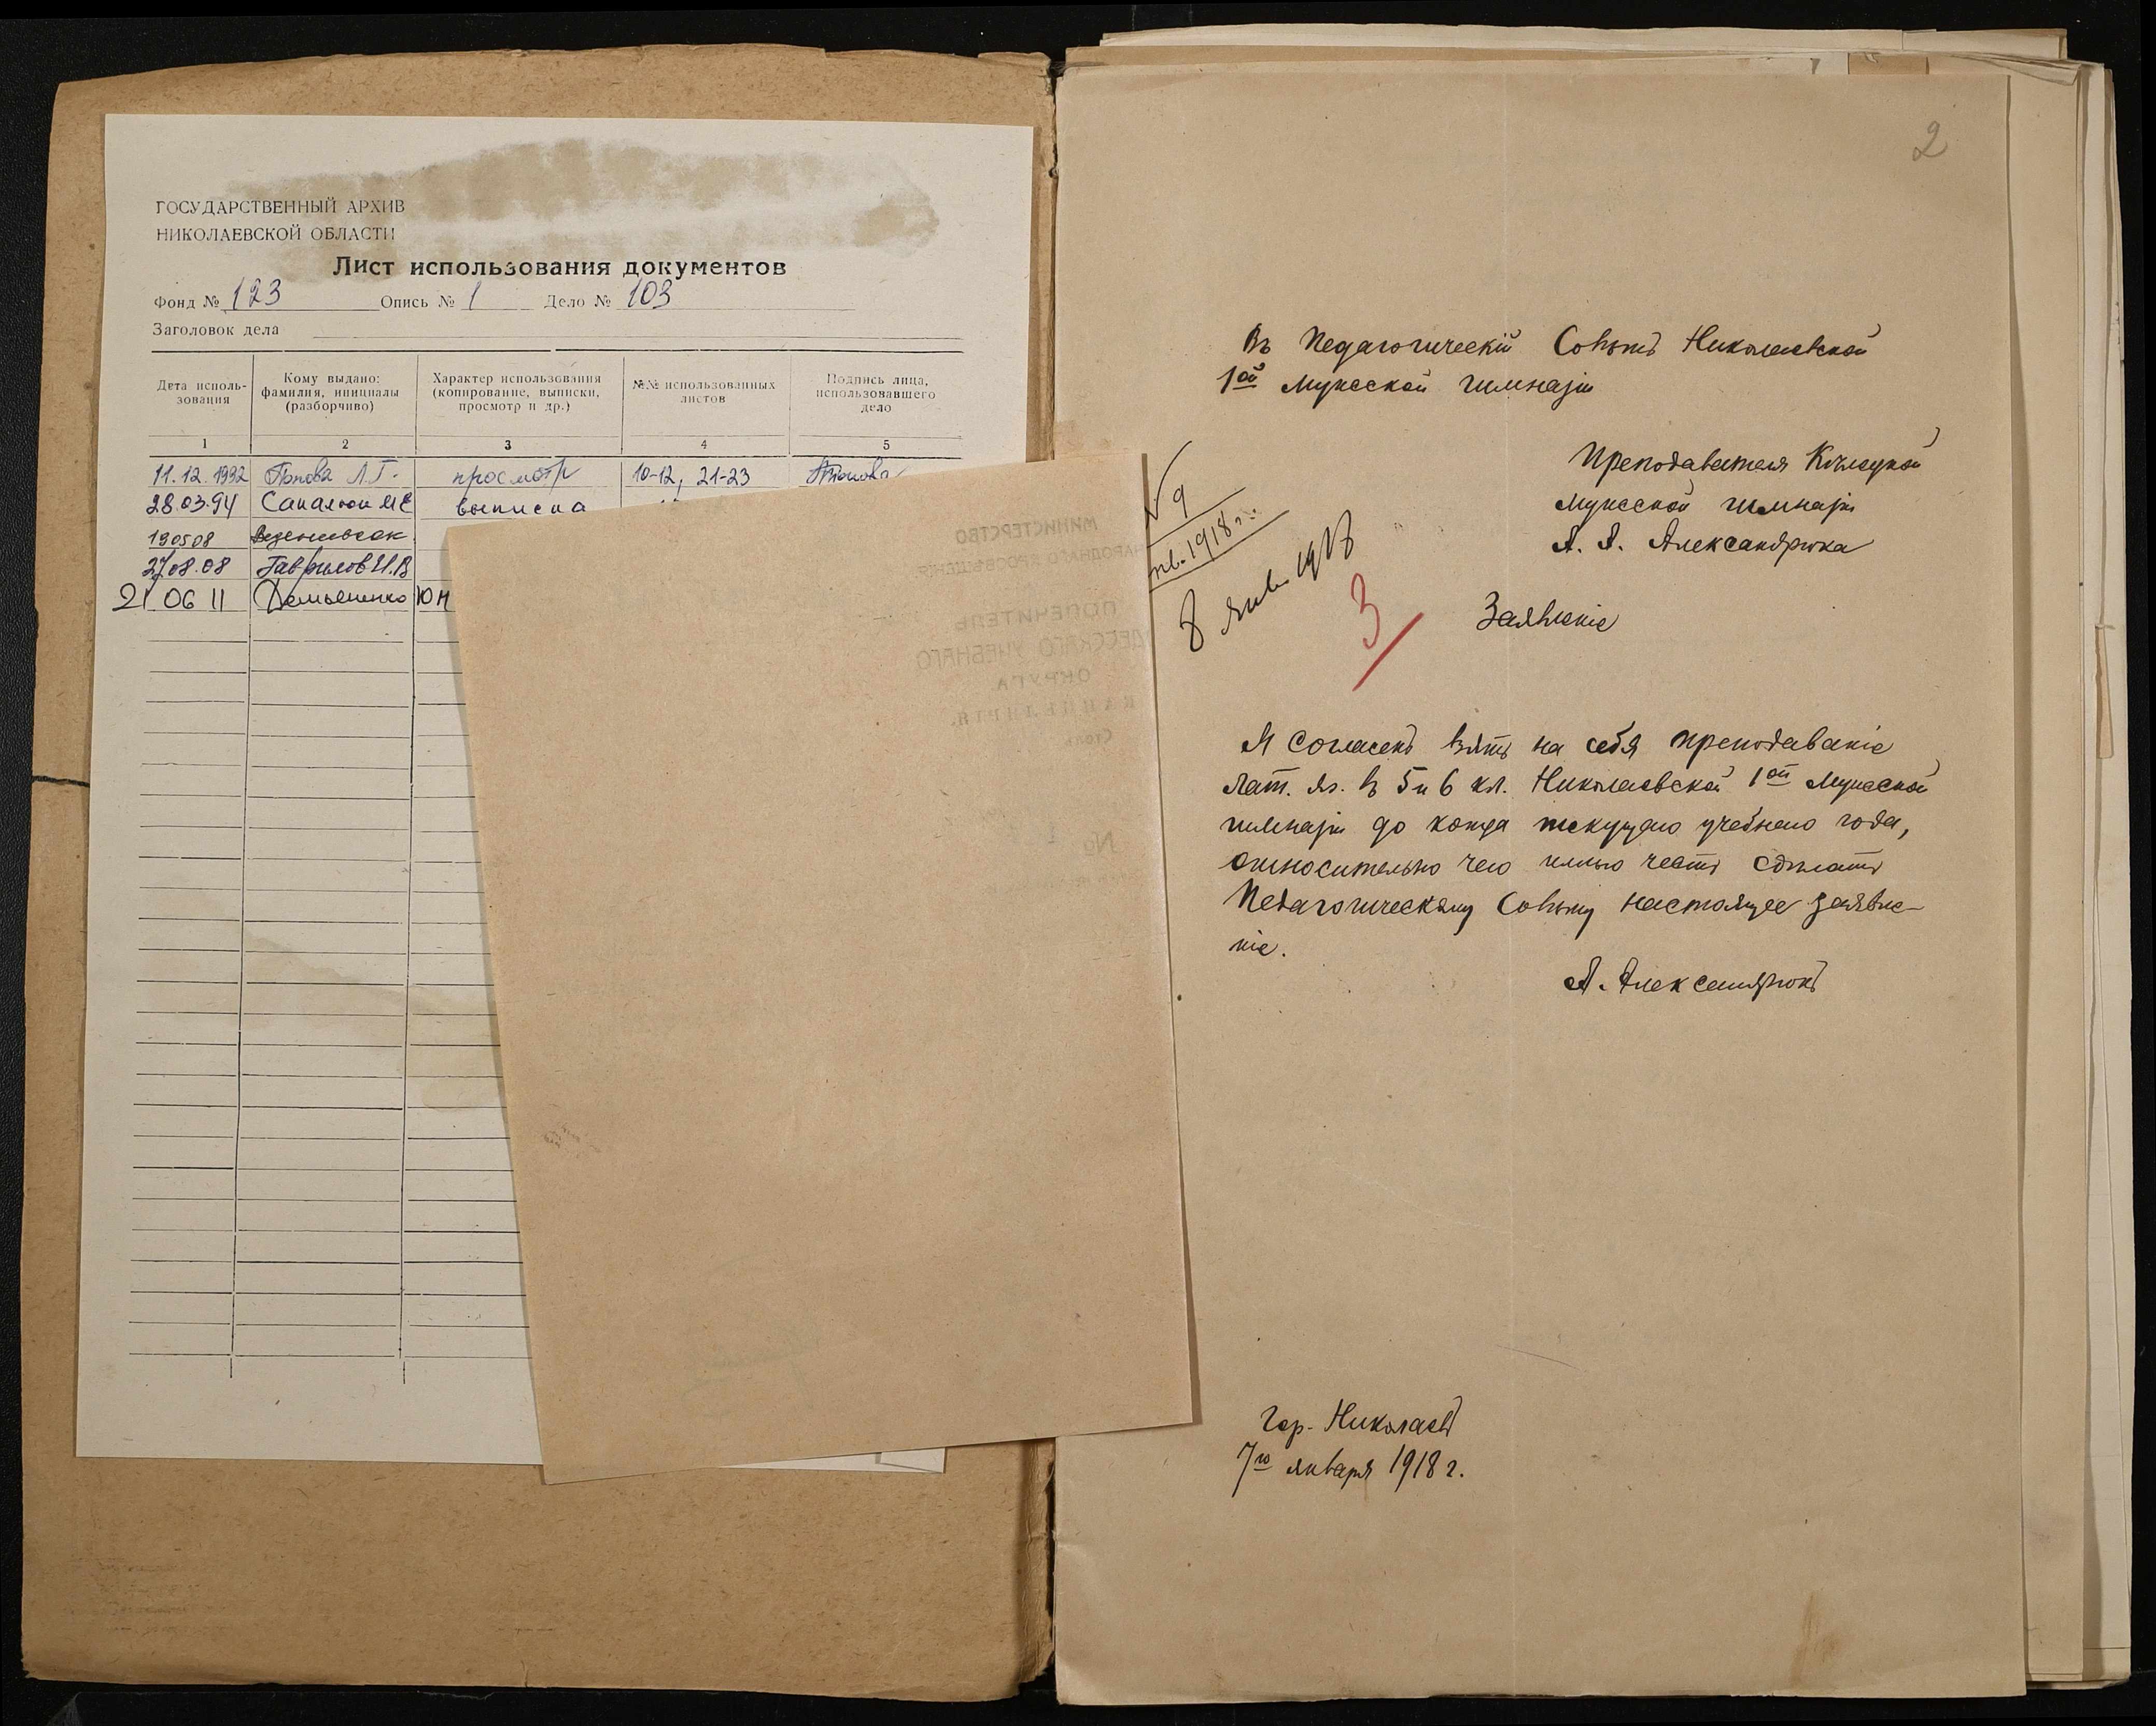 ГОСУДАРСТВЕННЫЙ АРХИВ
НИКОЛАЕВСКОЙ ОБЛАСТИ
Лист использования документов
Фонд № 123 Опись № 1 Дело № 103
Заголовок дела
Дата исполь-
зования
Кому выдано:
фамилия, инициалы
(разборчиво)
Характер использования
(копирование, выписки,
просмотр и др.)
№№ использованных
листов
Подпись лица,
использовавшего
дело
1 2 3 4 5
11.12.1992 Попова Л.Г. просмотр 10-12, 21-23
28.03.94 выписка
190508
27.08.08 Гаврилов И.В
21 06 11 Демьяненко ЮН
МИНИСТЕРСТВО
НАРОДНАГО ПРОСВѢЩЕНІЯ
ПОПЕЧИТЕЛЬ
ОДЕССКАГО УЧЕБНАГО
ОКРУГА
КАНЦЕЛЯРІЯ.
Столъ
№
2
Въ Педагогическій Совѣтъ Николаевской
1ой Мужской гимназіи
Преподавателя Кѣлецкой
Мужской гимназіи
А. А. Александрюка
№ 9
янв. 1918 г.
8 янв. 1918
3
Заявленіе
Я согласенъ взять на себя преподаваніе
лат. яз. въ 5 и 6 кл. Николаевской 1ой Мужской
гимназіи до конца текущаго учебнаго года,
относительно чего имѣю честь сдѣлать
Педагогическому Совѣту настоящее заявле-
ніе.
А. Александрюкъ
Гор. Николаевъ
7го января 1918 г.